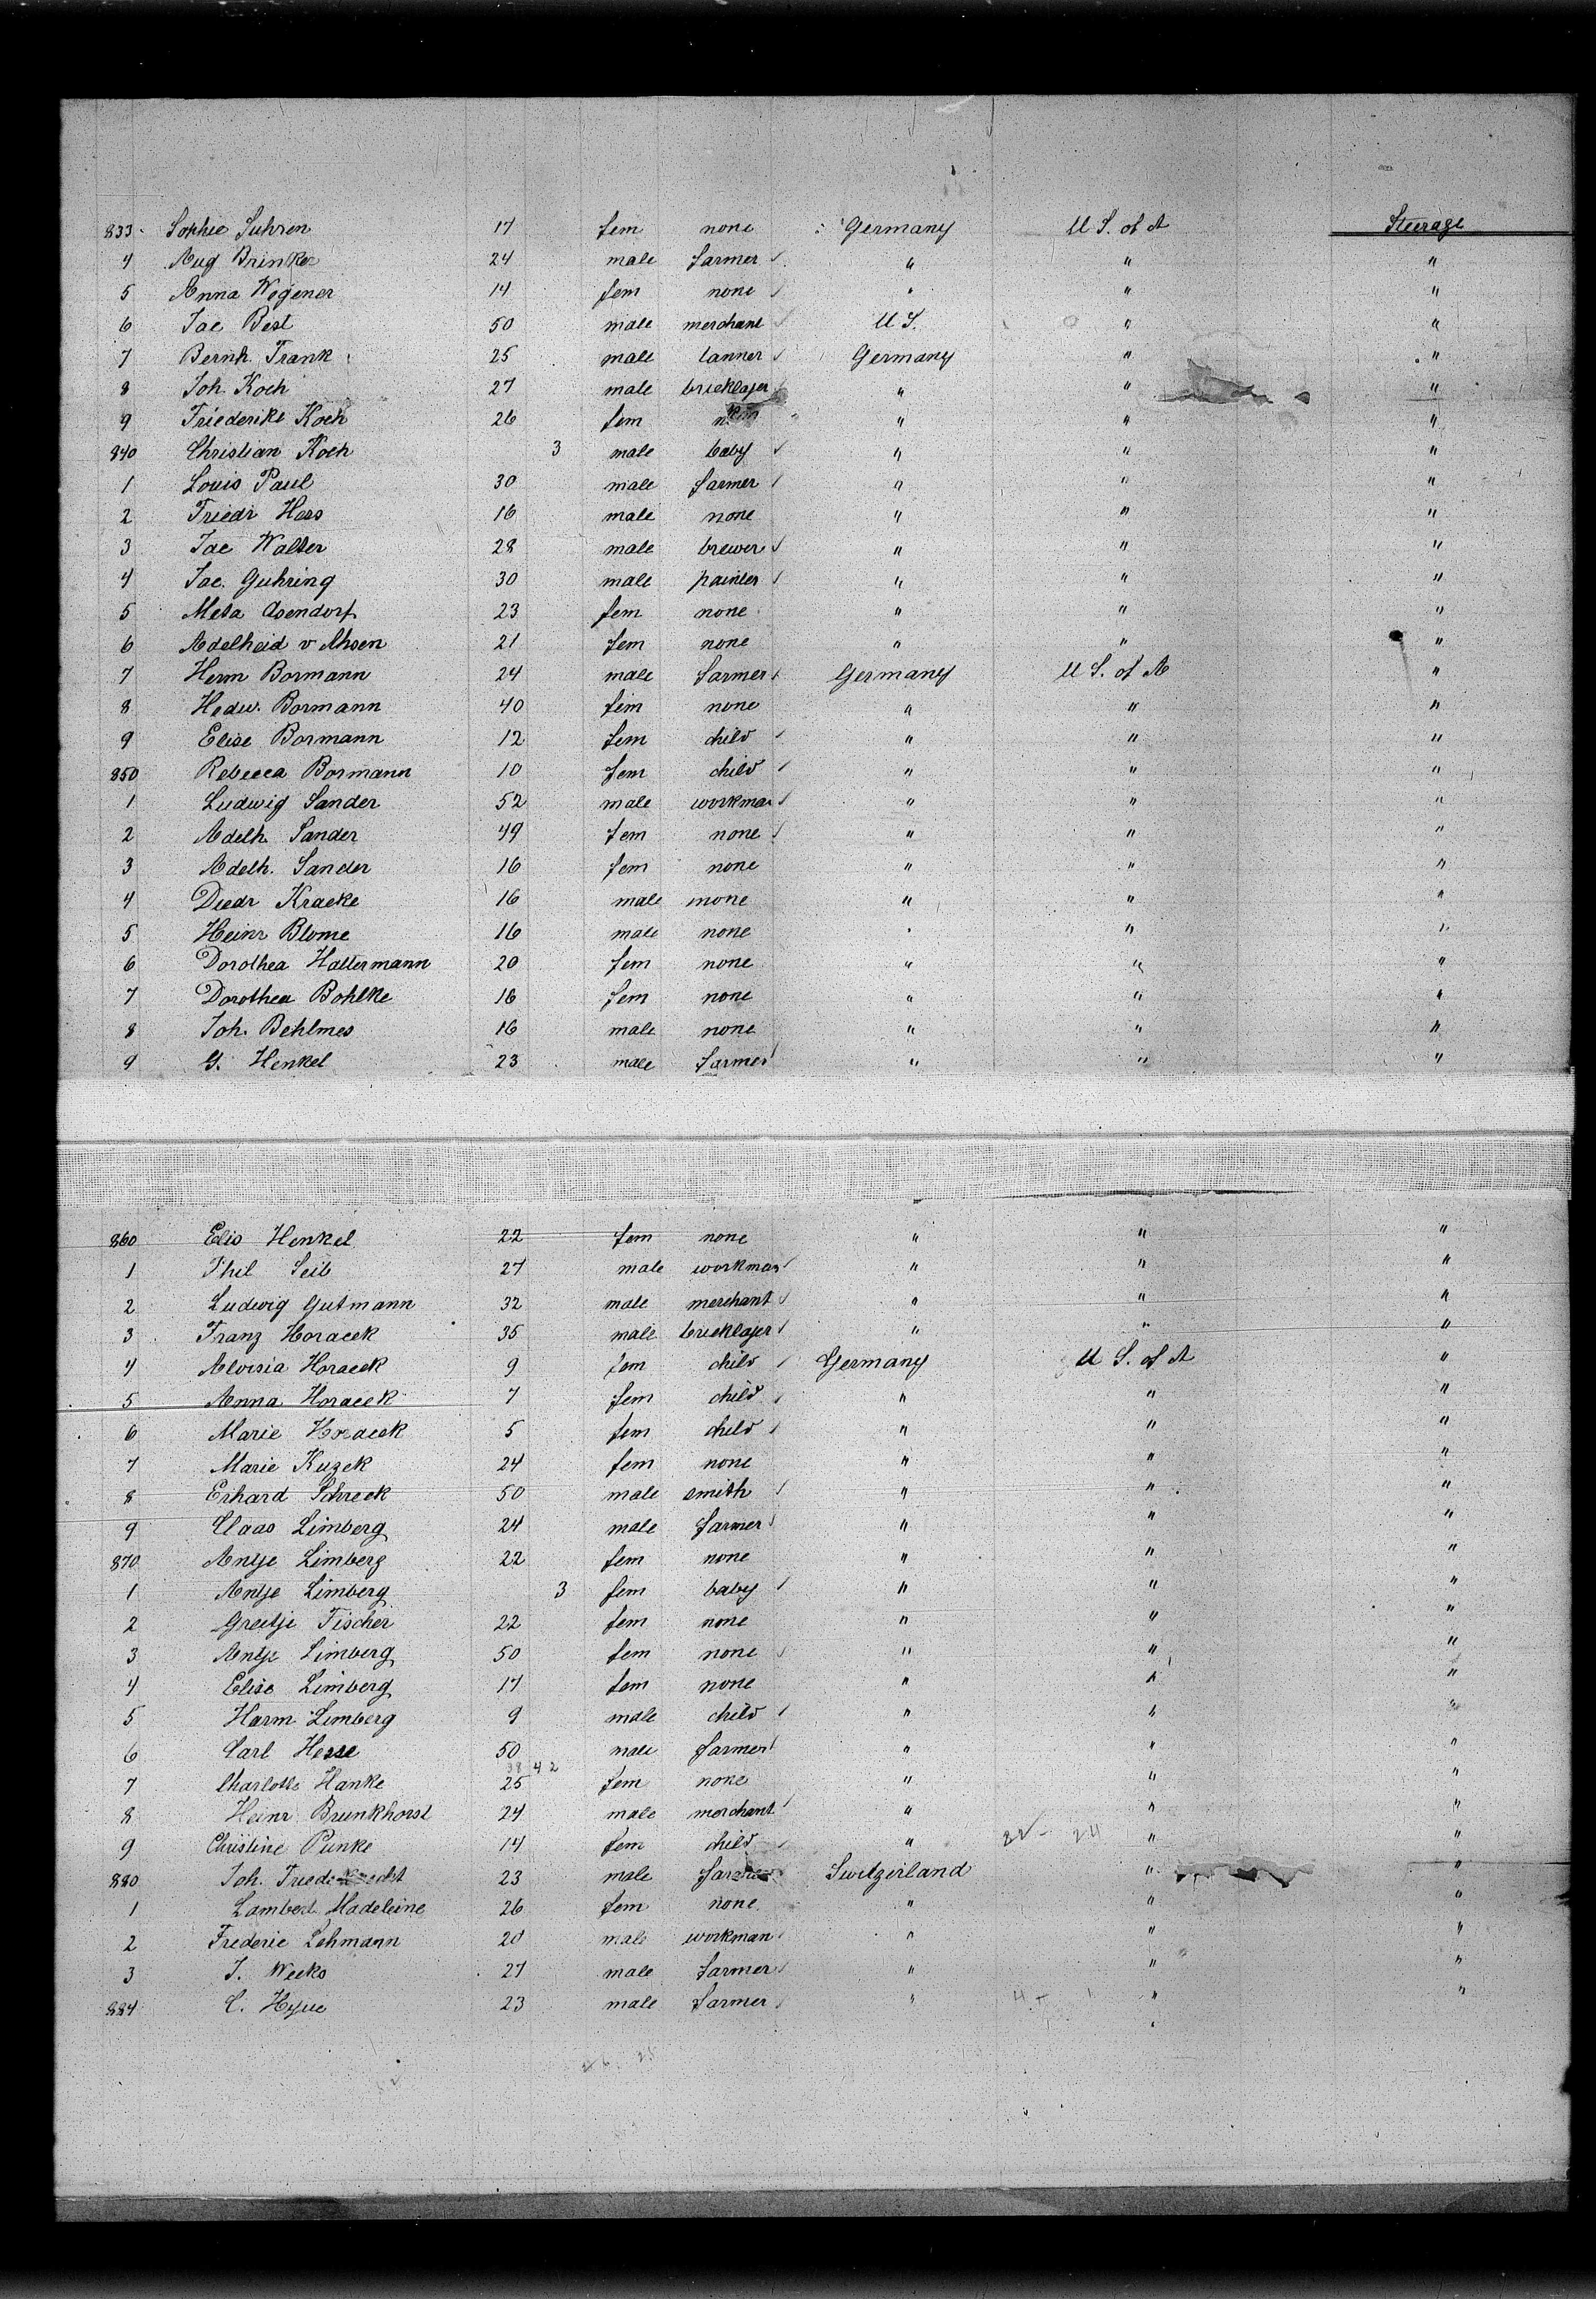 833 Sophie Suhren 17 fem none Germany U S. of A Steerage
4 Aug Brinker 24 male farmer " " "
5 Anna Wegener 14 fem none " " "
6 Jac Best 50 male merchant U S. " "
7 Bernh. Frank 25 male tanner Germany " "
8 Joh. Koch 27 male bricklayer " " "
9 Friederike Koch 26 fem " " "
840 Christian Koch 3 male baby " " "
1 Louis Paul 30 male farmer " " "
2 Friedr Hess 16 male none " " "
3 Jac Walter 28 male brewer " " "
4 Jac. Guhring 30 male painter " " "
5 Meta Asendorf 23 fem none " " "
6 Adelheid v Ahsen 21 fem none " " "
7 Herm Bormann 24 male farmer Germany U S. of A "
8 Hedw. Bormann 40 fem none " " "
9 Elise Bormann 12 fem child " " "
850 Rebecca Bormann 10 fem child " " "
1 Ludwig Sander 52 male workman " " "
2 Adelh. Sander 49 fem none " " "
3 Adelh. Sander 16 fem none " " "
4 Diedr Kracke 16 male none " " "
5 Heinr Blome 16 male none " " "
6 Dorothea Haltermann 20 fem none " " "
7 Dorothea Bohlke 16 fem none " " "
8 Joh. Behlmes 16 male none " " "
9 G. Henkel 23 male farmer " " "
860 Elis Henkel 22 fem none " " "
1 Phil Seib 27 male workman " " "
2 Ludwig Gutmann 32 male merchant " " "
3 Franz Horacek 35 male bricklayer " " "
4 Aloisia Horacek 9 fem child Germany U S. of A "
5 Anna Horacek 7 fem child " " "
6 Marie Horacek 5 fem child " " "
7 Marie Kuzek 24 fem none " " "
8 Erhard Schreck 50 male smith " " "
9 Claas Limberg 24 male farmer " " "
870 Antje Limberg 22 fem none " " "
1 Antje Limberg 3 fem baby " " "
2 Greetje Fischer 22 fem none " " "
3 Antje Limberg 50 fem none " " "
4 Elise Limberg 17 fem none " " "
5 Harm Limberg 9 male child " " "
6 Carl Hesse 50 male farmer " " "
38 42
7 Charlotte Hanke 25 fem none " " "
8 Heinr Brunkhorst 24 male merchant " " "
9 Christine Punke 14 fem child " 22 - 24 " "
880 Joh. 23 male farmer Switzerland " "
1 Lambert Madeleine 26 fem none " " "
2 Frederic Lehmann 20 male workman " " "
3 J. Weeks 27 male farmer " " "
884 C. 23 male farmer " " "